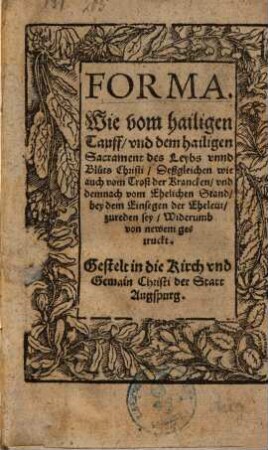 FORMA.
Wie vom hailigen
Tauff / vnd dem hailigen
Sacrament des Leybs vnnd
Blůts Christi / Deßgleichen wie
auch vom Trost der Krancken / vnd
demnach vom Ehelichen Stand /
bey dem Einsegen der Eheleut /
zureden sey / Widerumb
von newem ge⸗
truckt.
Gestelt in die Kirch vnd
Gemain Christi der Statt
Augspurg.